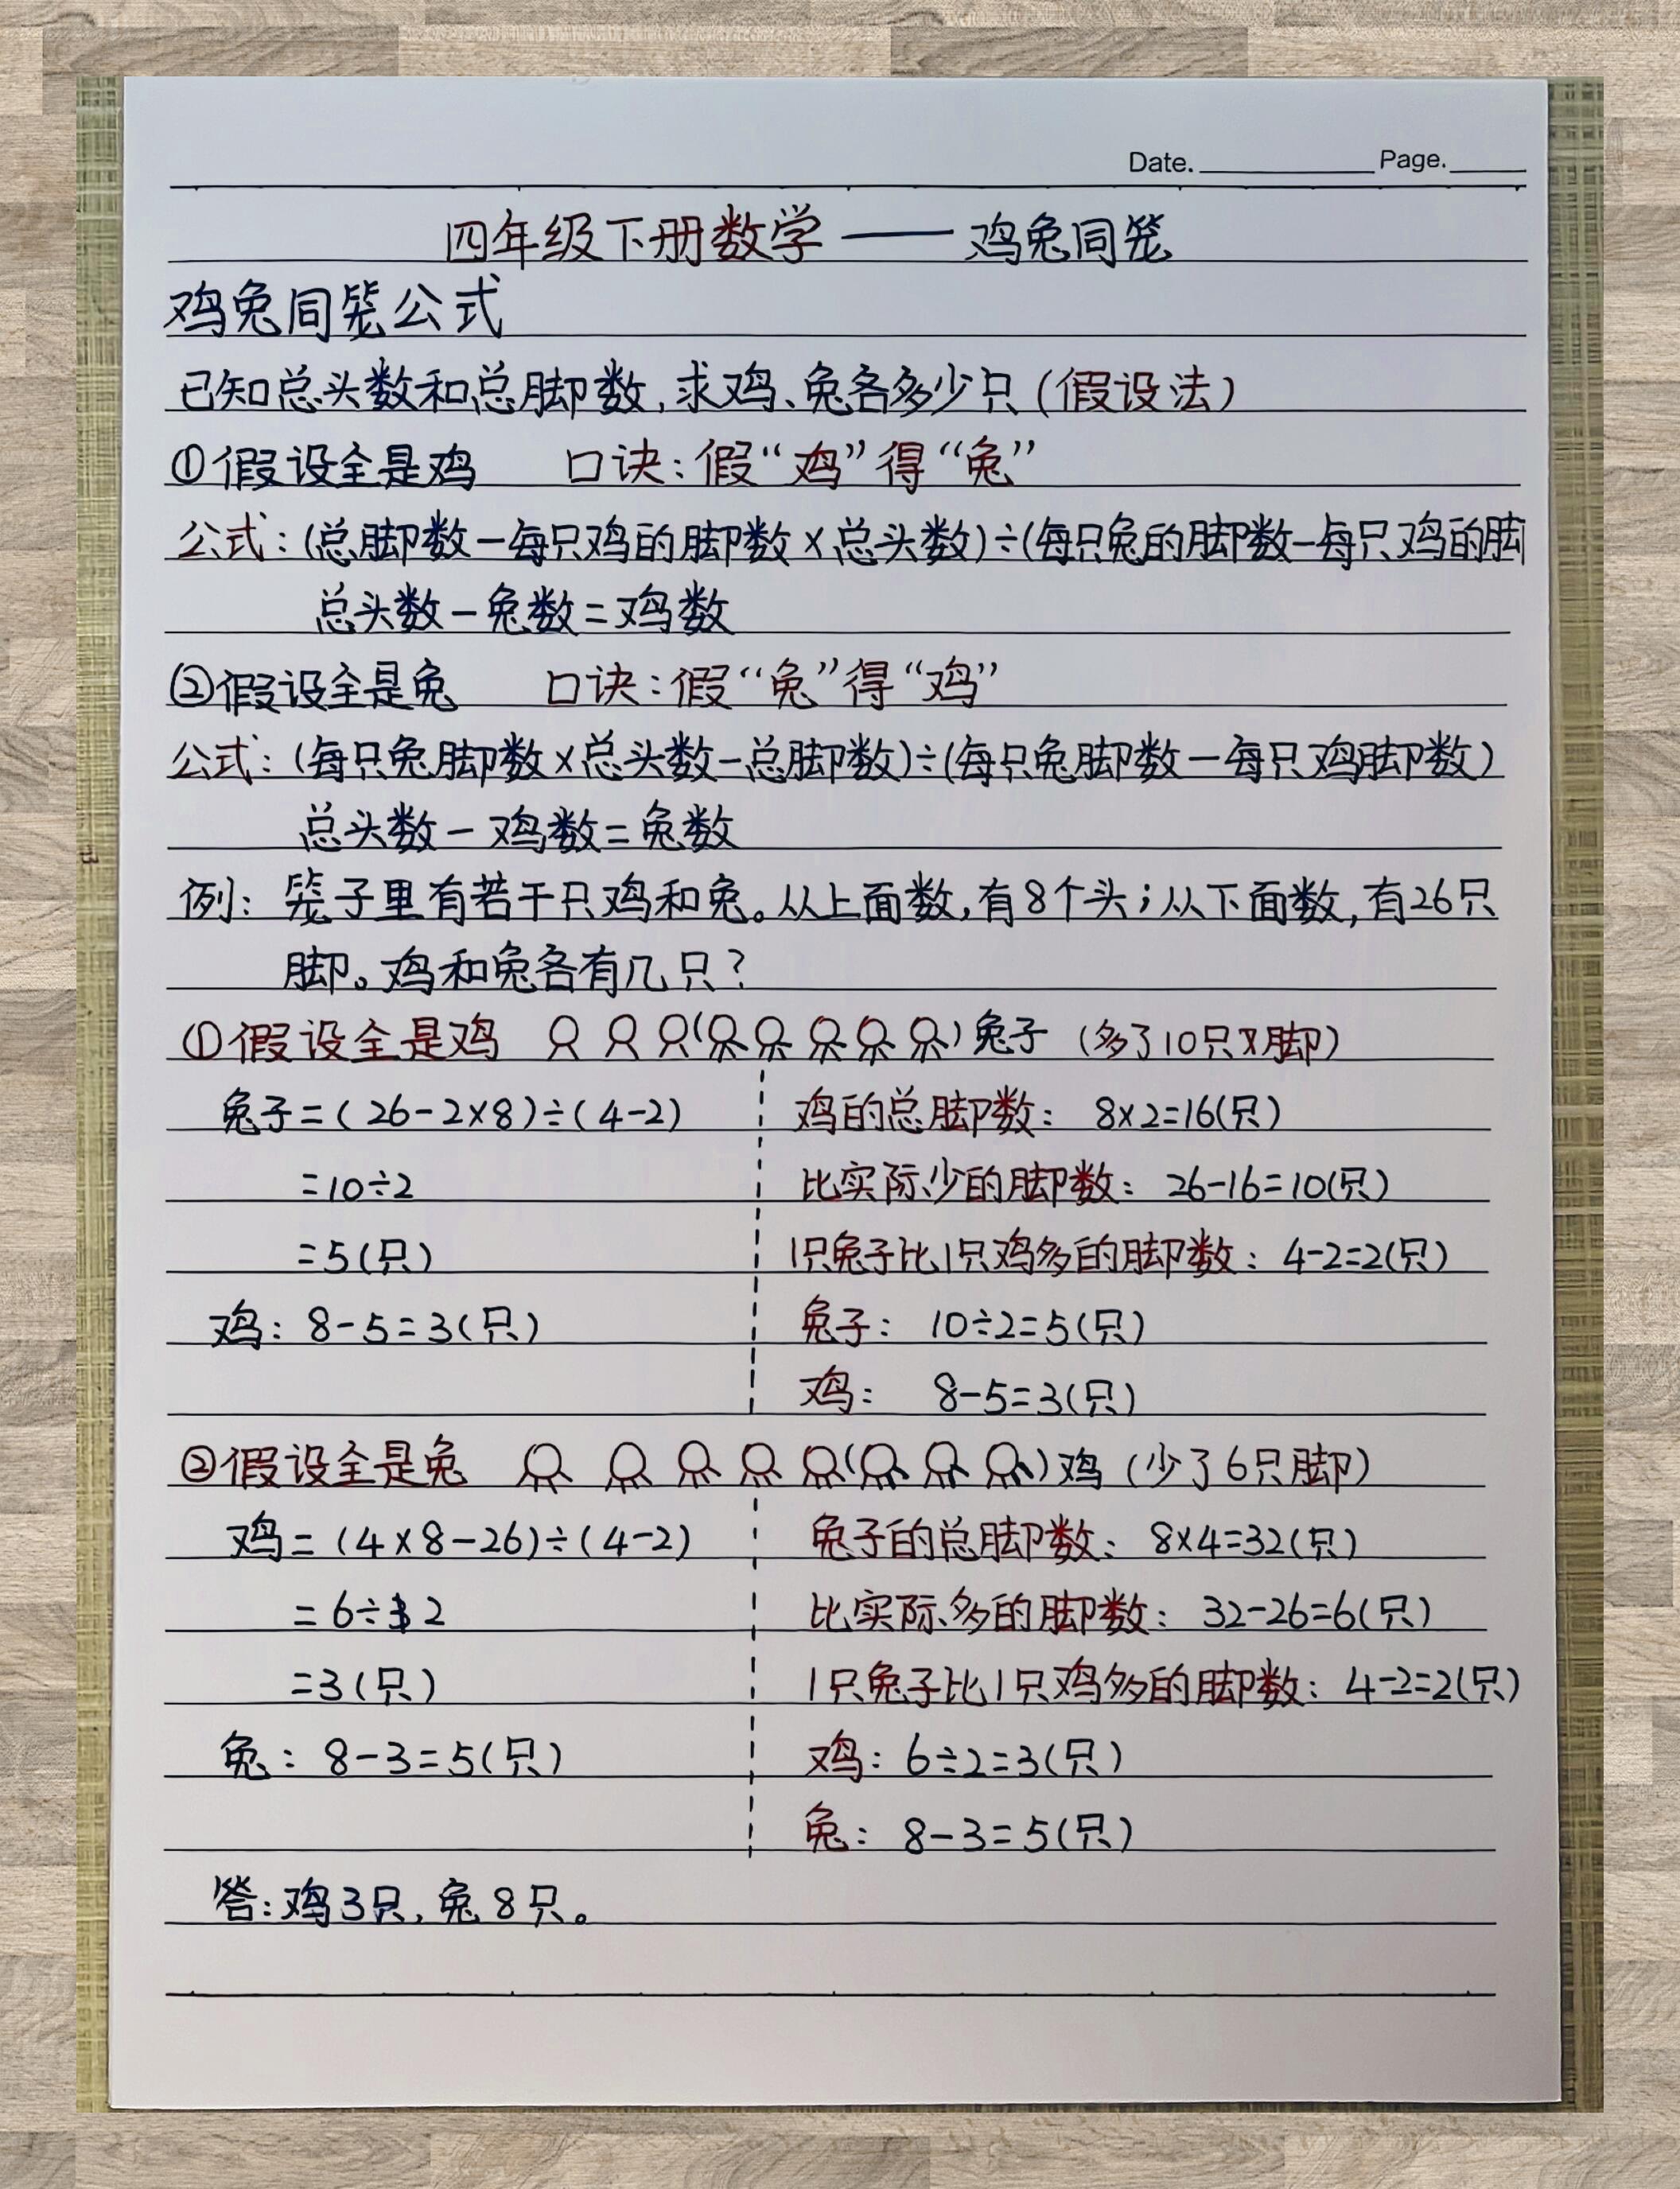 Date. Page.
四年级下册数学——鸡兔同笼
鸡兔同笼公式
已知总头数和总脚数,求鸡、兔各多少只(假设法)
①假设全是鸡 口诀:假“鸡”得“兔”
公式:(总脚数-每只鸡的脚数×总头数)÷(每只兔的脚数-每只鸡的脚
总头数-兔数=鸡数
②假设全是兔 口诀:假“兔”得“鸡”
公式:(每只兔脚数×总头数-总脚数)÷(每只兔脚数-每只鸡脚数)
总头数-鸡数=兔数
例:笼子里有若干只鸡和兔。从上面数,有8个头;从下面数,有26只
脚。鸡和兔各有几只?
①假设全是鸡 ( )兔子 (多了10只脚)
兔子=(26-2×8)÷(4-2) 鸡的总脚数: 8×2=16(只)
=10÷2 比实际少的脚数: 26-16=10(只)
=5(只) 1只兔子比1只鸡多的脚数: 4-2=2(只)
鸡: 8-5=3(只) 兔子: 10÷2=5(只)
鸡: 8-5=3(只)
②假设全是兔 ( )鸡 (少了6只脚)
鸡=(4×8-26)÷(4-2) 兔子的总脚数: 8×4=32(只)
=6÷2 比实际多的脚数: 32-26=6(只)
=3(只) 1只兔子比1只鸡多的脚数: 4-2=2(只)
兔: 8-3=5(只) 鸡: 6÷2=3(只)
兔: 8-3=5(只)
答:鸡3只,兔8只。